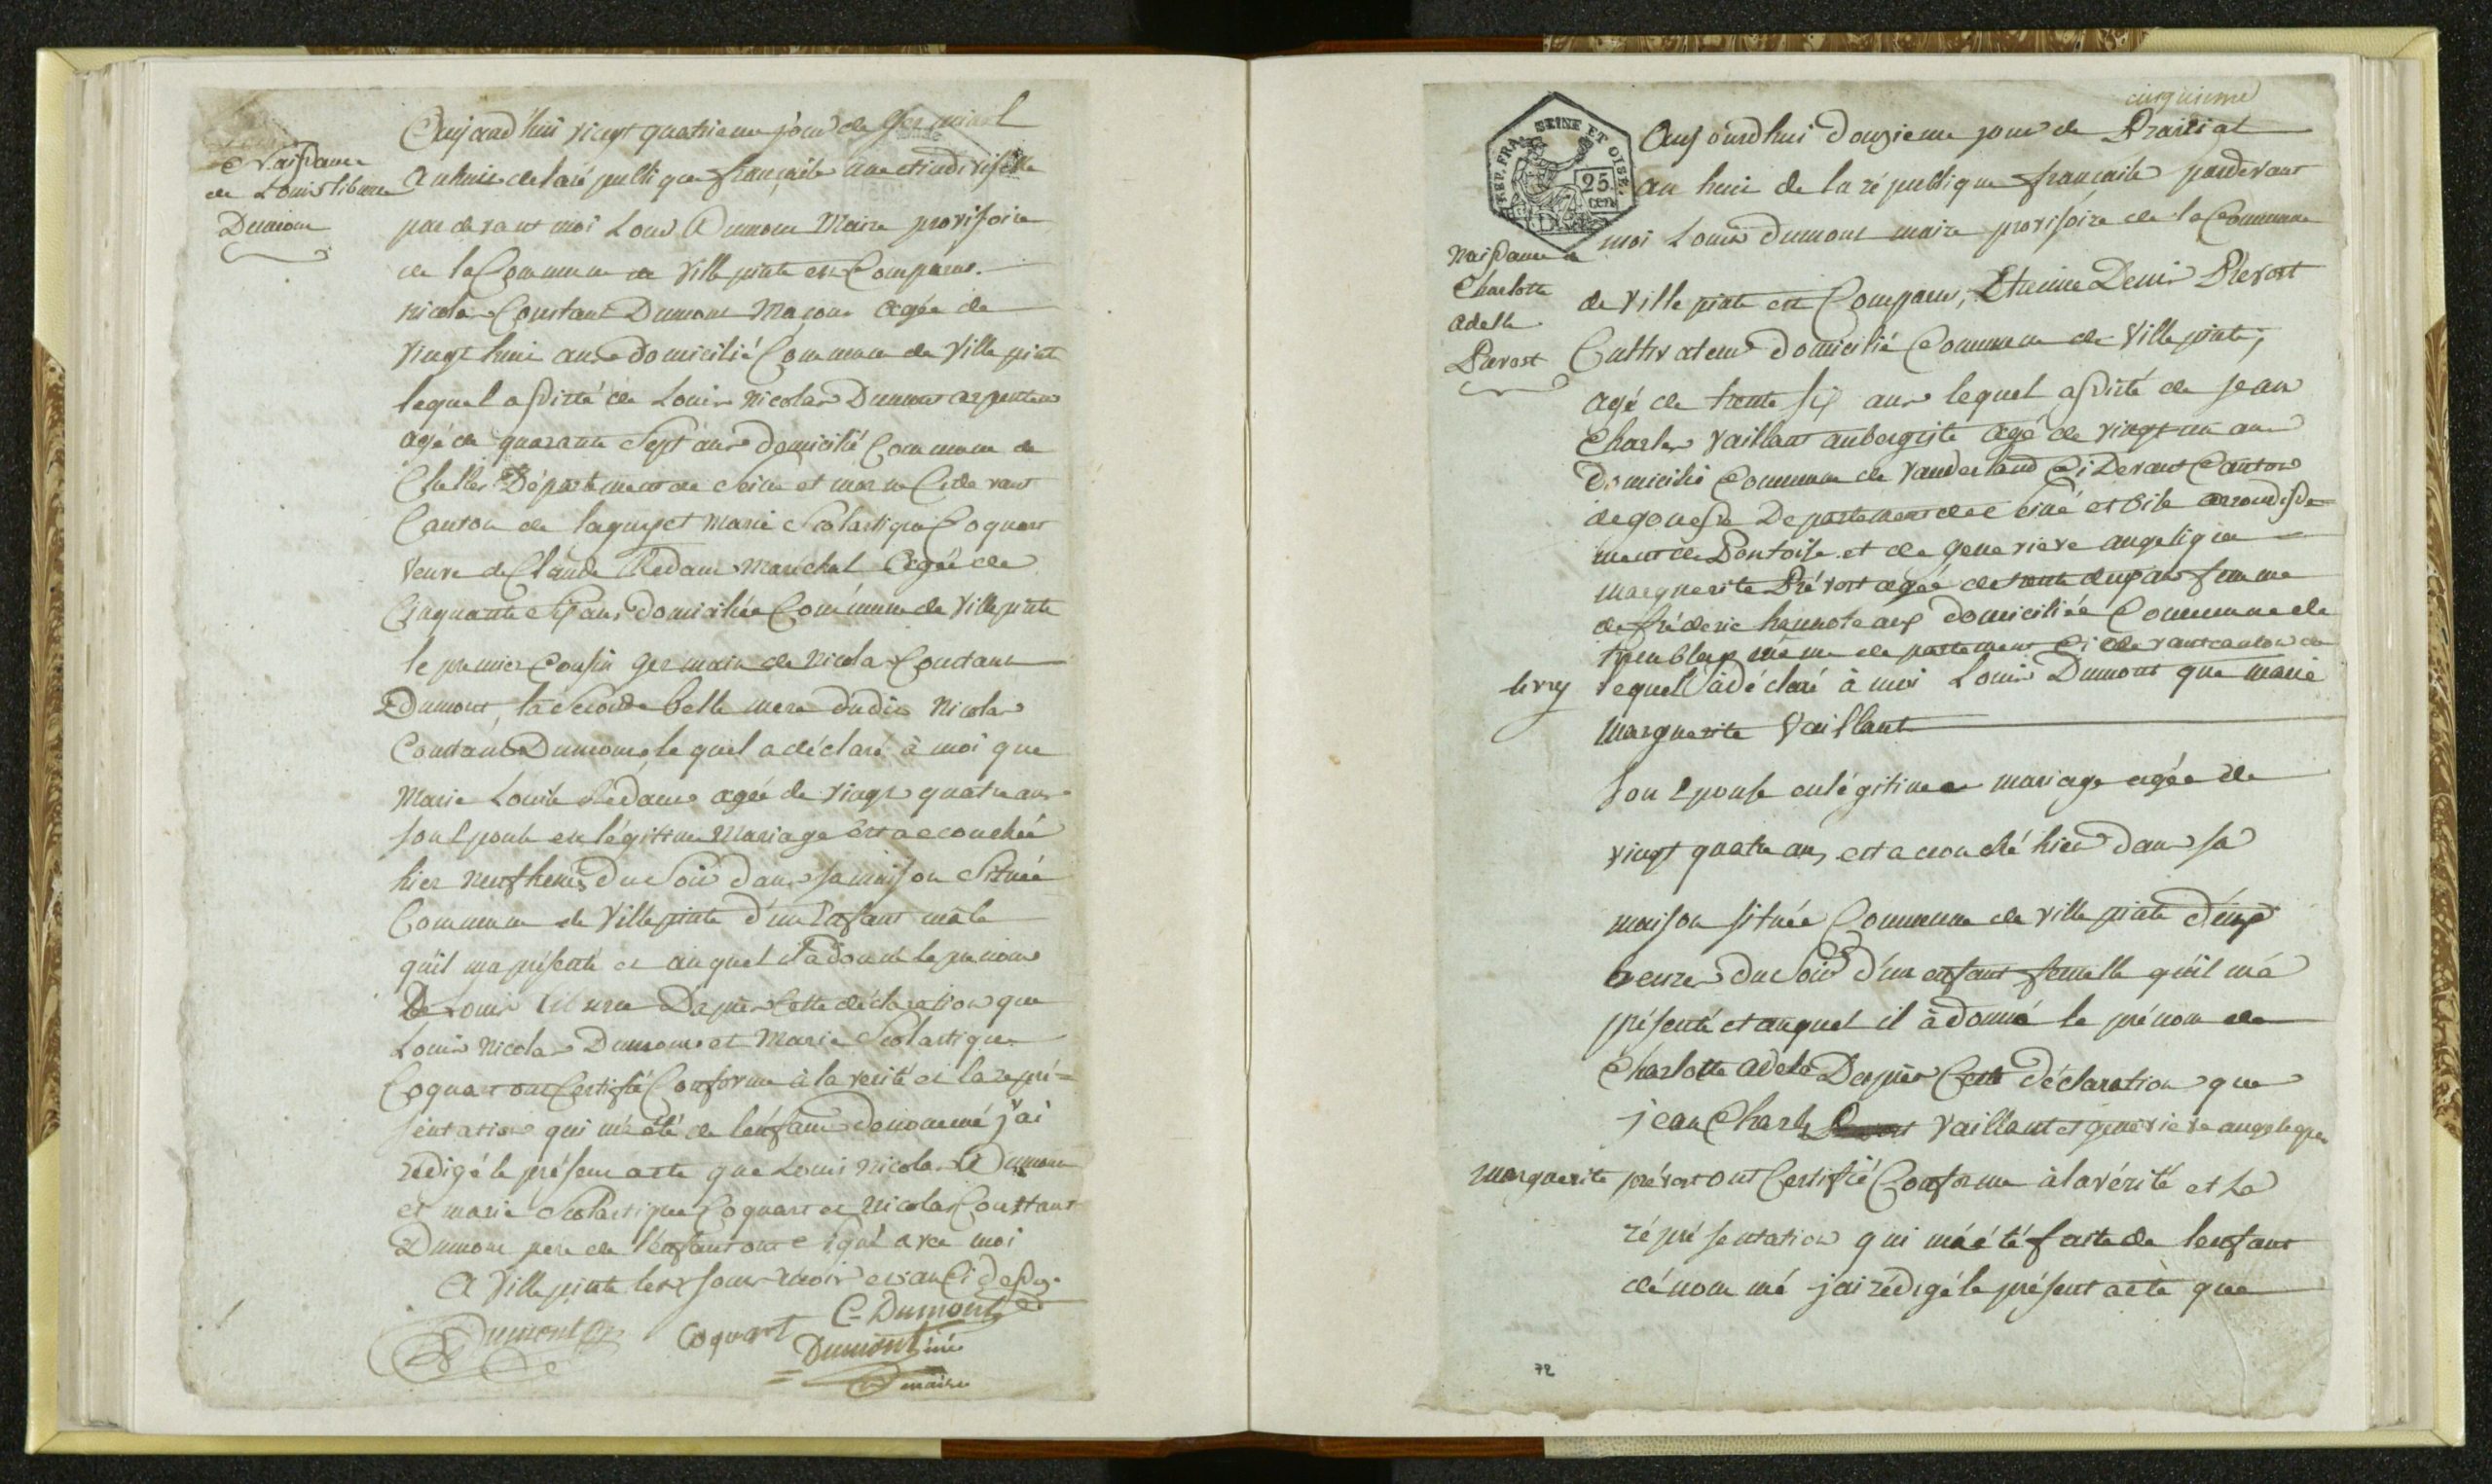 Naissance
de Louis liburne
Dumont
Aujourd'hui vingt quatrieme jour de Germinal
an huit de la république française une et indivisible
par devant moi Louis Dumont Maire provisoire
de la Commune de Villepinte est Comparu
nicolas Constant Dumont Maçon agée de
vingt huit ans domicilié Commune de Villepinte
lequel assisté de Louis Nicolas Dumont arpenteur
agé de quarante Sept ans domicilié Commune de
Chelles Département de Seine et marne Cidevant
Canton de lagny et Marie Scolastique Coquart
Veuve de Claude Redam Maréchal agée de
Cinquante Six ans domiciliée Commune de Villepinte
le premier Cousin Germain de Nicolas Constant
Dumont, la Seconde belle mere dudit Nicolas
Constant Dumont, lequel a déclaré à moi que
Marie Louise Redam agée de vingt quatre ans
son Epouse en légitime Mariage est accouchée
hier neuf heures du Soir dans sa maison Située
Commune de Villepinte d'un Enfant mâle
qu'il ma présenté et auquel il a donné le prenom
De Louis liburne D'après Cette déclaration que
Louis Nicolas Dumont et Marie Scolastique
Coquart ont Certifié Conforme à la verité et la repré=
sentation qui m'a été de l'enfant denommé j'ai
redigé le présent acte que Louis Nicolas Dumont
et marie Scolastique Coquart et Nicolas Constant
Dumont pere de l'enfant ont signé avec moi
A Villepinte les jour mois et an Ci dessus.
Dumont Coquart C. Dumont
Dumont
maire
REP. FRA. SEINE ET OISE.
25 cen
cinquieme
Aujourd'hui Douzieme jour de Prairial
an huit de la république française pardevant
moi Louis Dumont maire provisoire de la Commune
Naissance de
Charlotte
adelle
Prevost
de Villepinte est Comparu, Etienne Denis Prevost
Cultivateur domicilié Commune de Villepinte,
agé de trente six ans lequel assisté de jean
Charles Vaillant aubergiste agé de vingt un ans
Domicilié Commune de Vauderland Ci Devant Canton
de gonesse Departement de Seine et Oise arrondisse=
ment de Pontoise et de genevieve angelique
marguerite Prévost agée de trente deux ans femme
de fréderic hannoteaux domiciliée Commune de
tremblay même departement Ci devant canton de
livry lequel à déclaré à moi Louis Dumont que marie
marguerite Vaillant
son Epouse en légitime mariage agée de
vingt quatre ans, est accouché hier dans sa
maison située Commune de villepinte à deux
heures du Soir d'un enfant femelle qu'il m'a
présenté et auquel il à donné le prénom de
Charlotte adele D'après Cette déclaration que
jean Charles Vaillant et genevieve angelique
marguerite prévost ont Certifié Conforme à la vérité et la
réprésentation qui m'a été faite de lenfant
dénommé j'ai rédigé le présent acte que
72